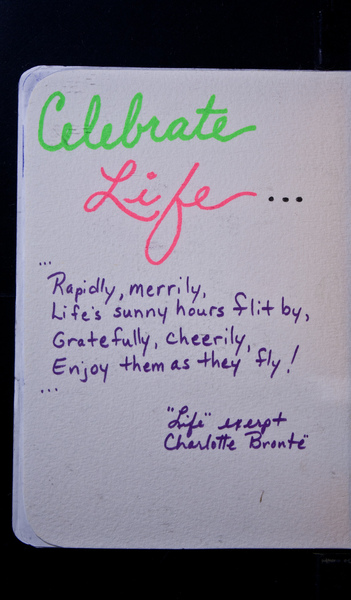 Celebrate
Life...
...
Rapidly, merrily,
Life's sunny hours flit by,
Gratefully, cheerily,
Enjoy them as they fly!
...
"Life" exerpt
Charlotte Brontë